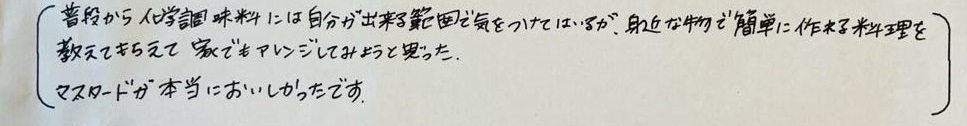 普段から化学調味料には自分が出来る範囲で気をつけてはいるが、身近な物で簡単に作れる料理を
教えてもらえて 家でもアレンジしてみようと思った.
マスタードが本当においしかったです.